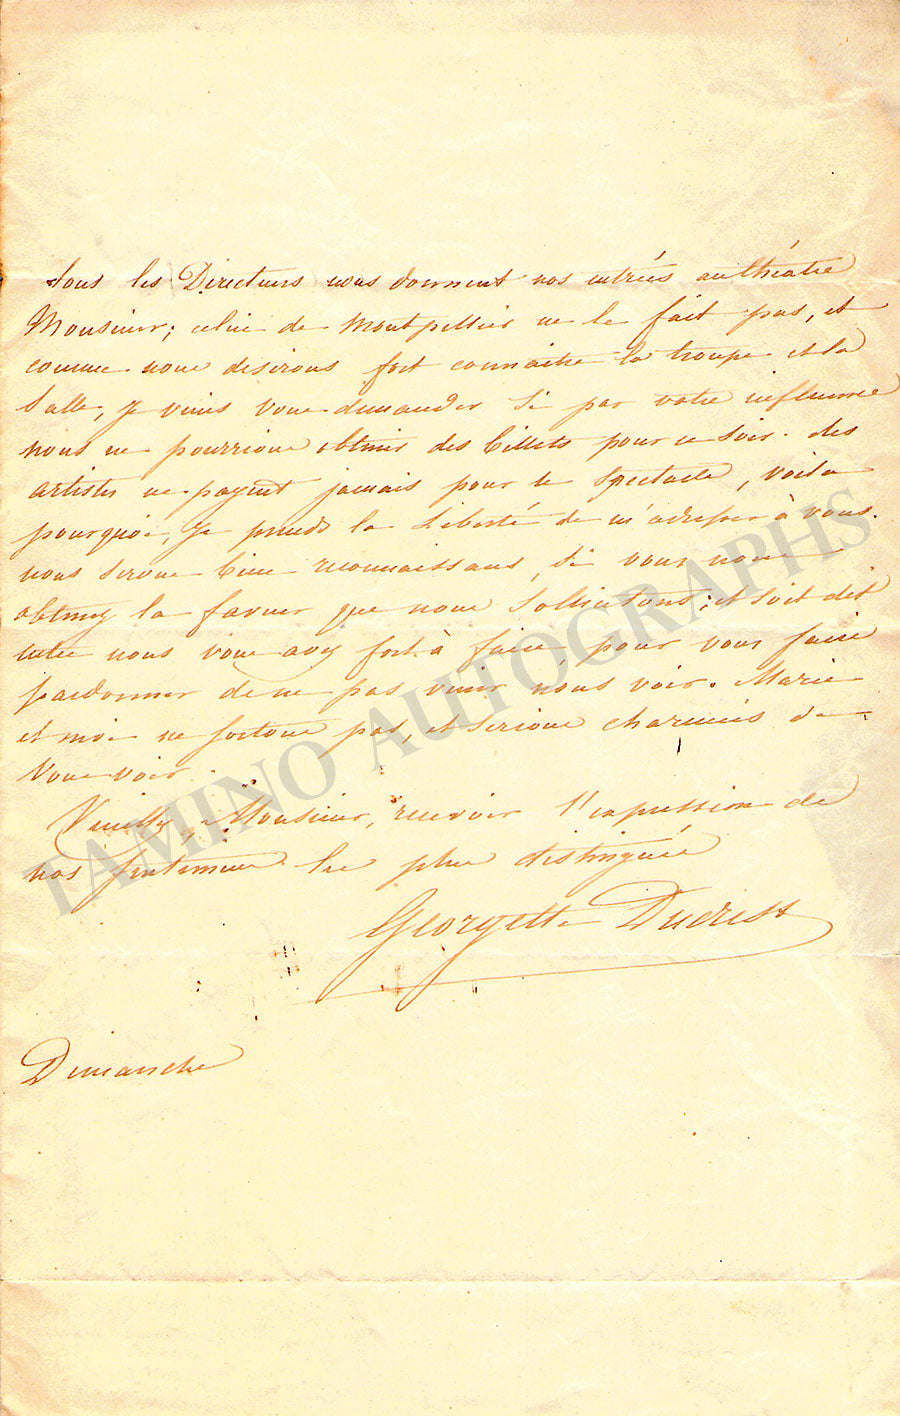 Tous les Directeurs nous donnent nos entrées au théatre
Monsieur; celui de Montpellier ne le fait pas, et
comme nous desirons fort connaitre la troupe et la
Salle, je viens vous demander si par votre influence
nous ne pourrions obtenir des billets pour ce soir. des
artistes ne payent jamais pour le spectacle, voila
pourquoi, je prends la liberté de m'adresser à vous.
nous serons bien reconnaissans, si vous nous
obtenez la faveur que nous sollicitons; et soit dit
entre nous vous avez fort à faire pour vous faire
pardonner de ne pas venir nous voir. Marie
et moi ne sortons pas, et serions charmées de
Vous voir.
Veuillez, Monsieur, recevoir l'expression de
nos sentimens les plus distingués
Georgette Ducrest
Dimanche
TAMINO AUTOGRAPHS